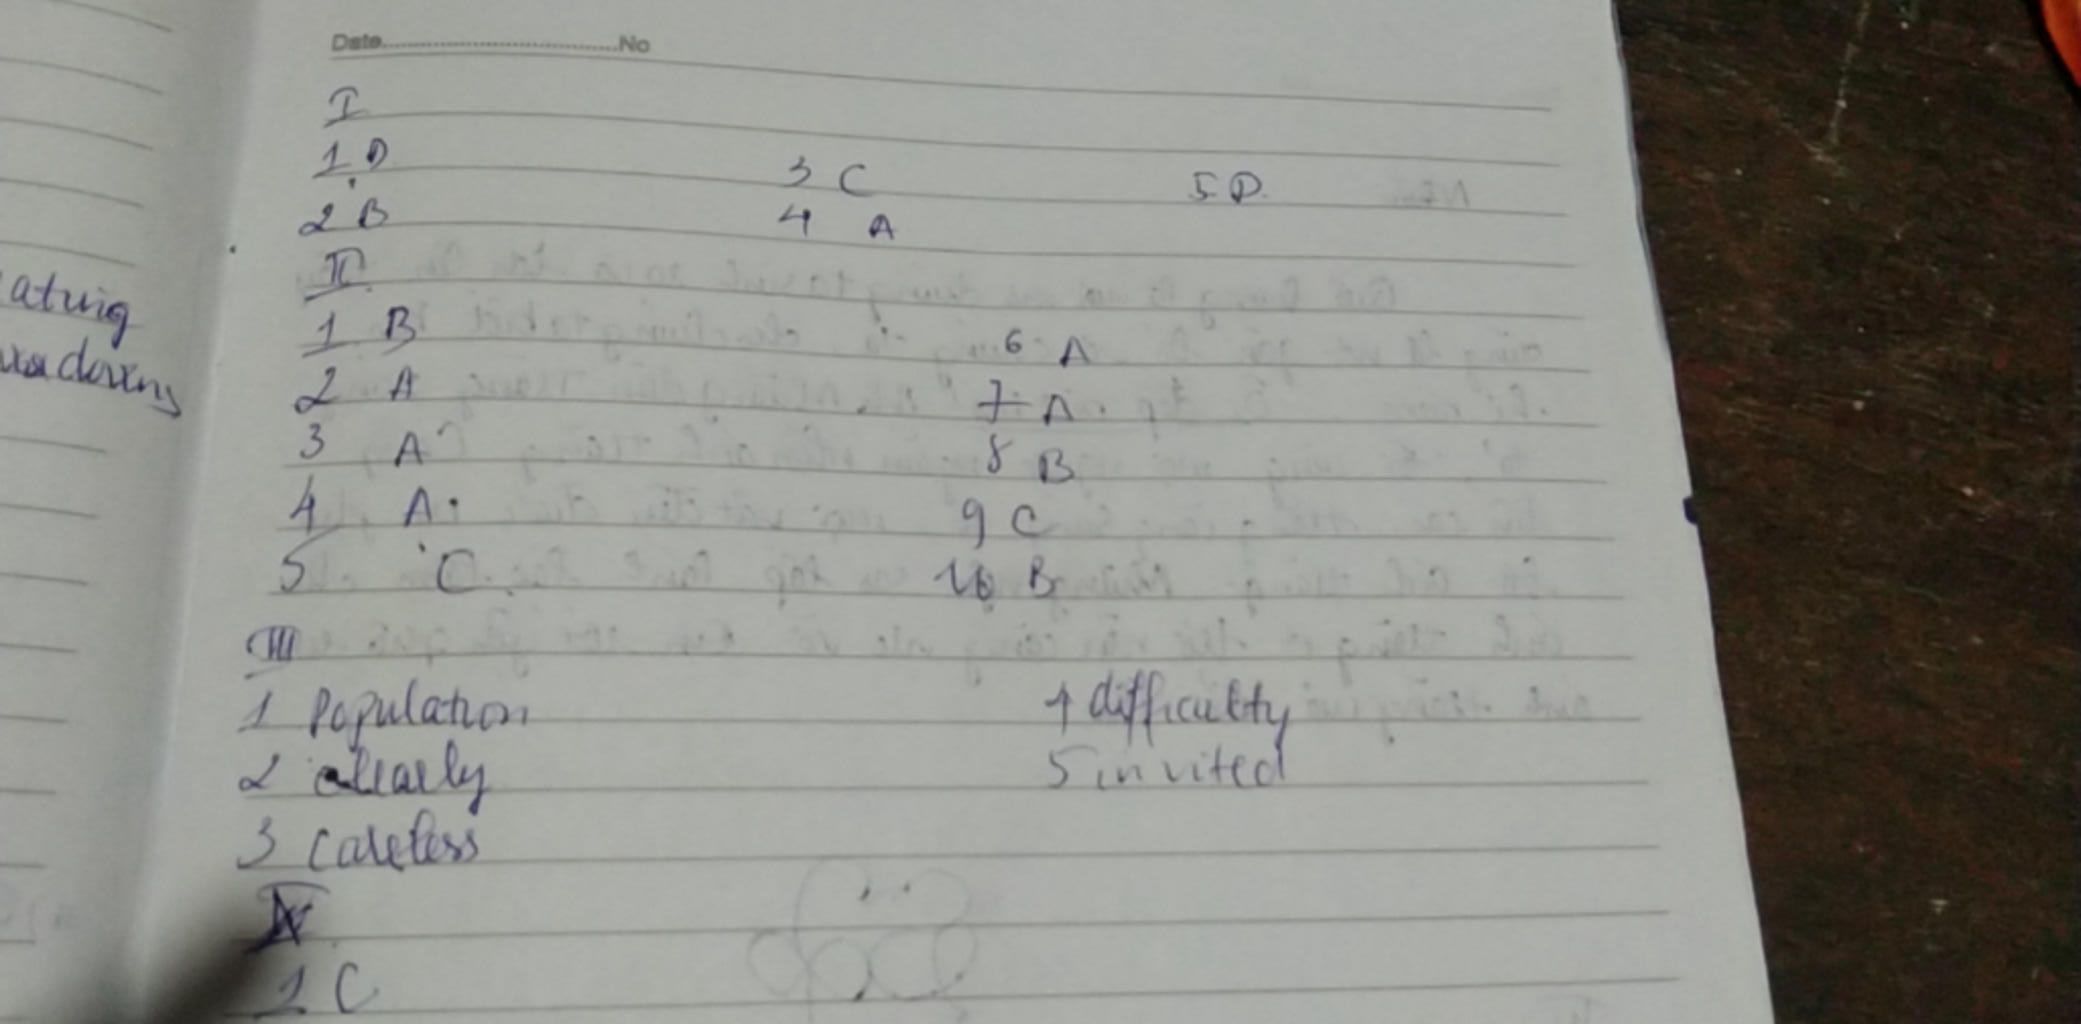 Date No
I
1 D 3 C 5 D
2 B 4 A
II
1 B 6 A
2 A 7 A
3 A 8 B
4 A 9 C
5 C 10 B
III
1 Population 4 difficulty
2 clearly 5 invited
3 Careless
IV
1 C
ating